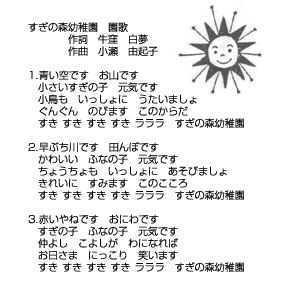 すぎの森幼稚園　園歌
作詞　牛窪　白夢
作曲　小瀬　由起子
1.青い空です　お山です
小さいすぎの子　元気です
小鳥も　いっしょに　うたいましょ
ぐんぐん　のびます　このからだ
すき すき すき すき ラララ　すぎの森幼稚園
2.早ぶち川です　田んぼです
かわいい　ふなの子　元気です
ちょうちょも　いっしょに　あそびましょ
きれいに　すみます　このこころ
すき すき すき すき ラララ　すぎの森幼稚園
3.赤いやねです　おにわです
すぎの子　ふなの子　元気です
仲よし　こよしが　わになれば
お日さま　にっこり　笑います
すき すき すき すき ラララ　すぎの森幼稚園